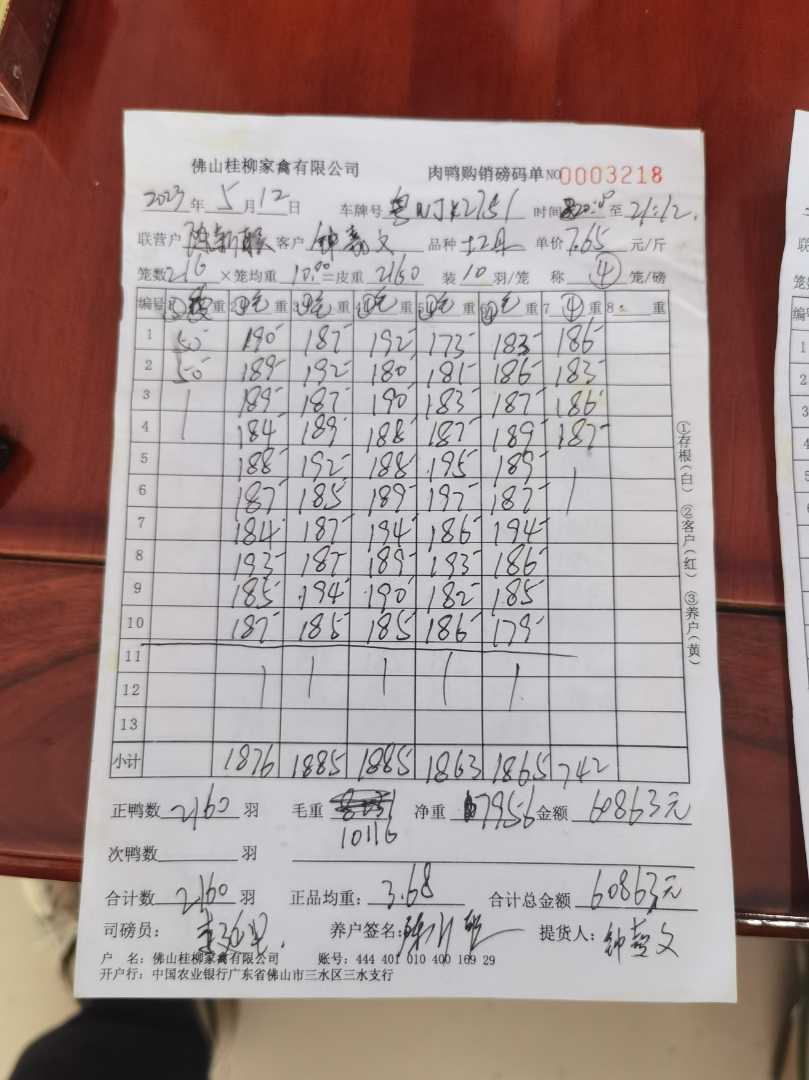 佛山桂柳家禽有限公司 肉鸭购销磅码单 NO 0003218
2023年 5月12日 车牌号 时间 至 21:12
联营户 客户 钟 文 品种 单价 7.65 元/斤
笼数 216 ×笼均重 10.00 =皮重 2160 装 10 羽/笼 称 ④ 笼/磅
编号 重 2 重 3 重 4 重 5 重 6 重 7 ④ 重 8 重
1 50 190 187 192 173 183 186
2 50 189 192 180 181 186 183
3 189 187 190 183 187 186
4 184 189 188 187 189 187
5 188 192 188 195 189
6 187 185 189 197 187
7 184 187 194 186 194
8 193 187 189 193 186
9 185 194 190 182 185
10 187 185 185 186 179
11
12
13
小计 1876 1885 1885 1863 1865 742
正鸭数 2160 羽 毛重 10116 净重 7956 金额 60863元
次鸭数 羽
合计数 2160 羽 正品均重: 3.68 合计总金额 60863元
司磅员: 养户签名: 提货人: 钟 文
户 名: 佛山桂柳家禽有限公司 账号: 444 401 010 400 169 29
开户行: 中国农业银行广东省佛山市三水区三水支行
①存根(白) ②客户(红) ③养户(黄)